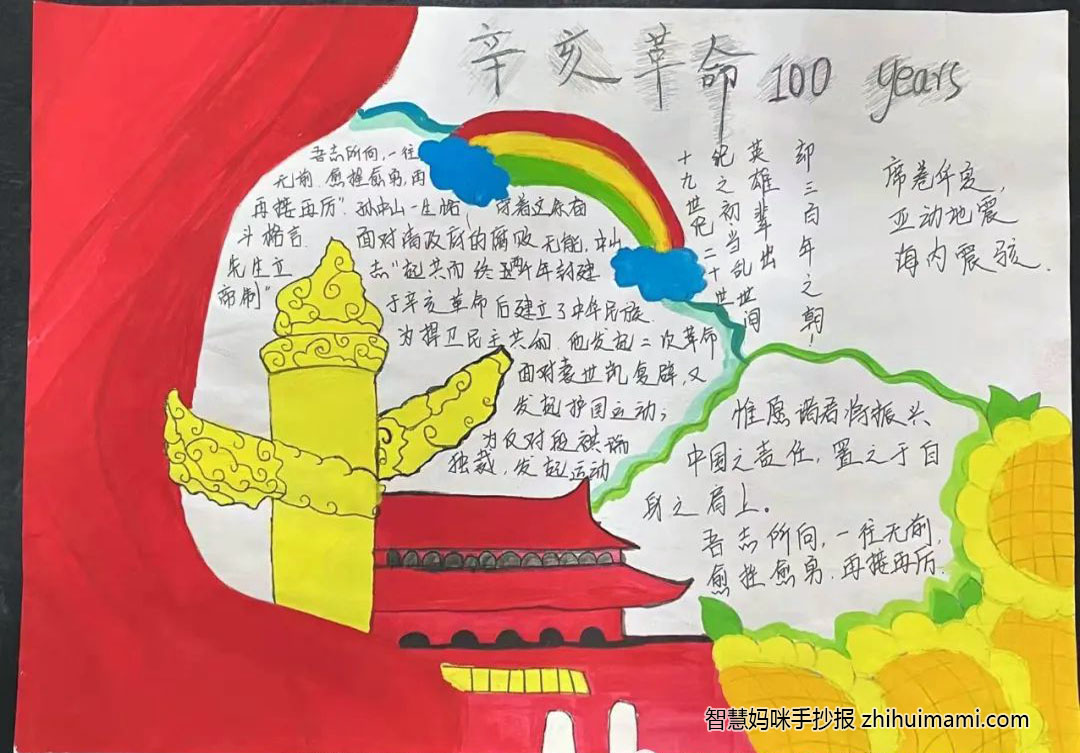 辛亥革命 100 years
吾志所向,一往
无前.愈挫愈勇,再
再接再厉".孙中山一生恪 守着这条奋
斗格言. 面对清政府的腐败无能,中山
先生立 志"起共和 终 千年封建
帝制"
于辛亥革命后建立了中华民族
为捍卫民主共和,他发起二次革命
面对袁世凯复辟,又
发起护国运动;
为反对段祺瑞
独裁,发起运动
却三百年之朝!
英雄辈出 世间
纪之初当乱世
十九世纪二十世
席卷年夏,
亚动地震
海内震骇.
惟愿诸君将振兴
中国之责任,置之于自
身之肩上。
吾志所向,一往无前,
愈挫愈勇.再接再厉.
智慧妈咪手抄报 zhihuimami.com